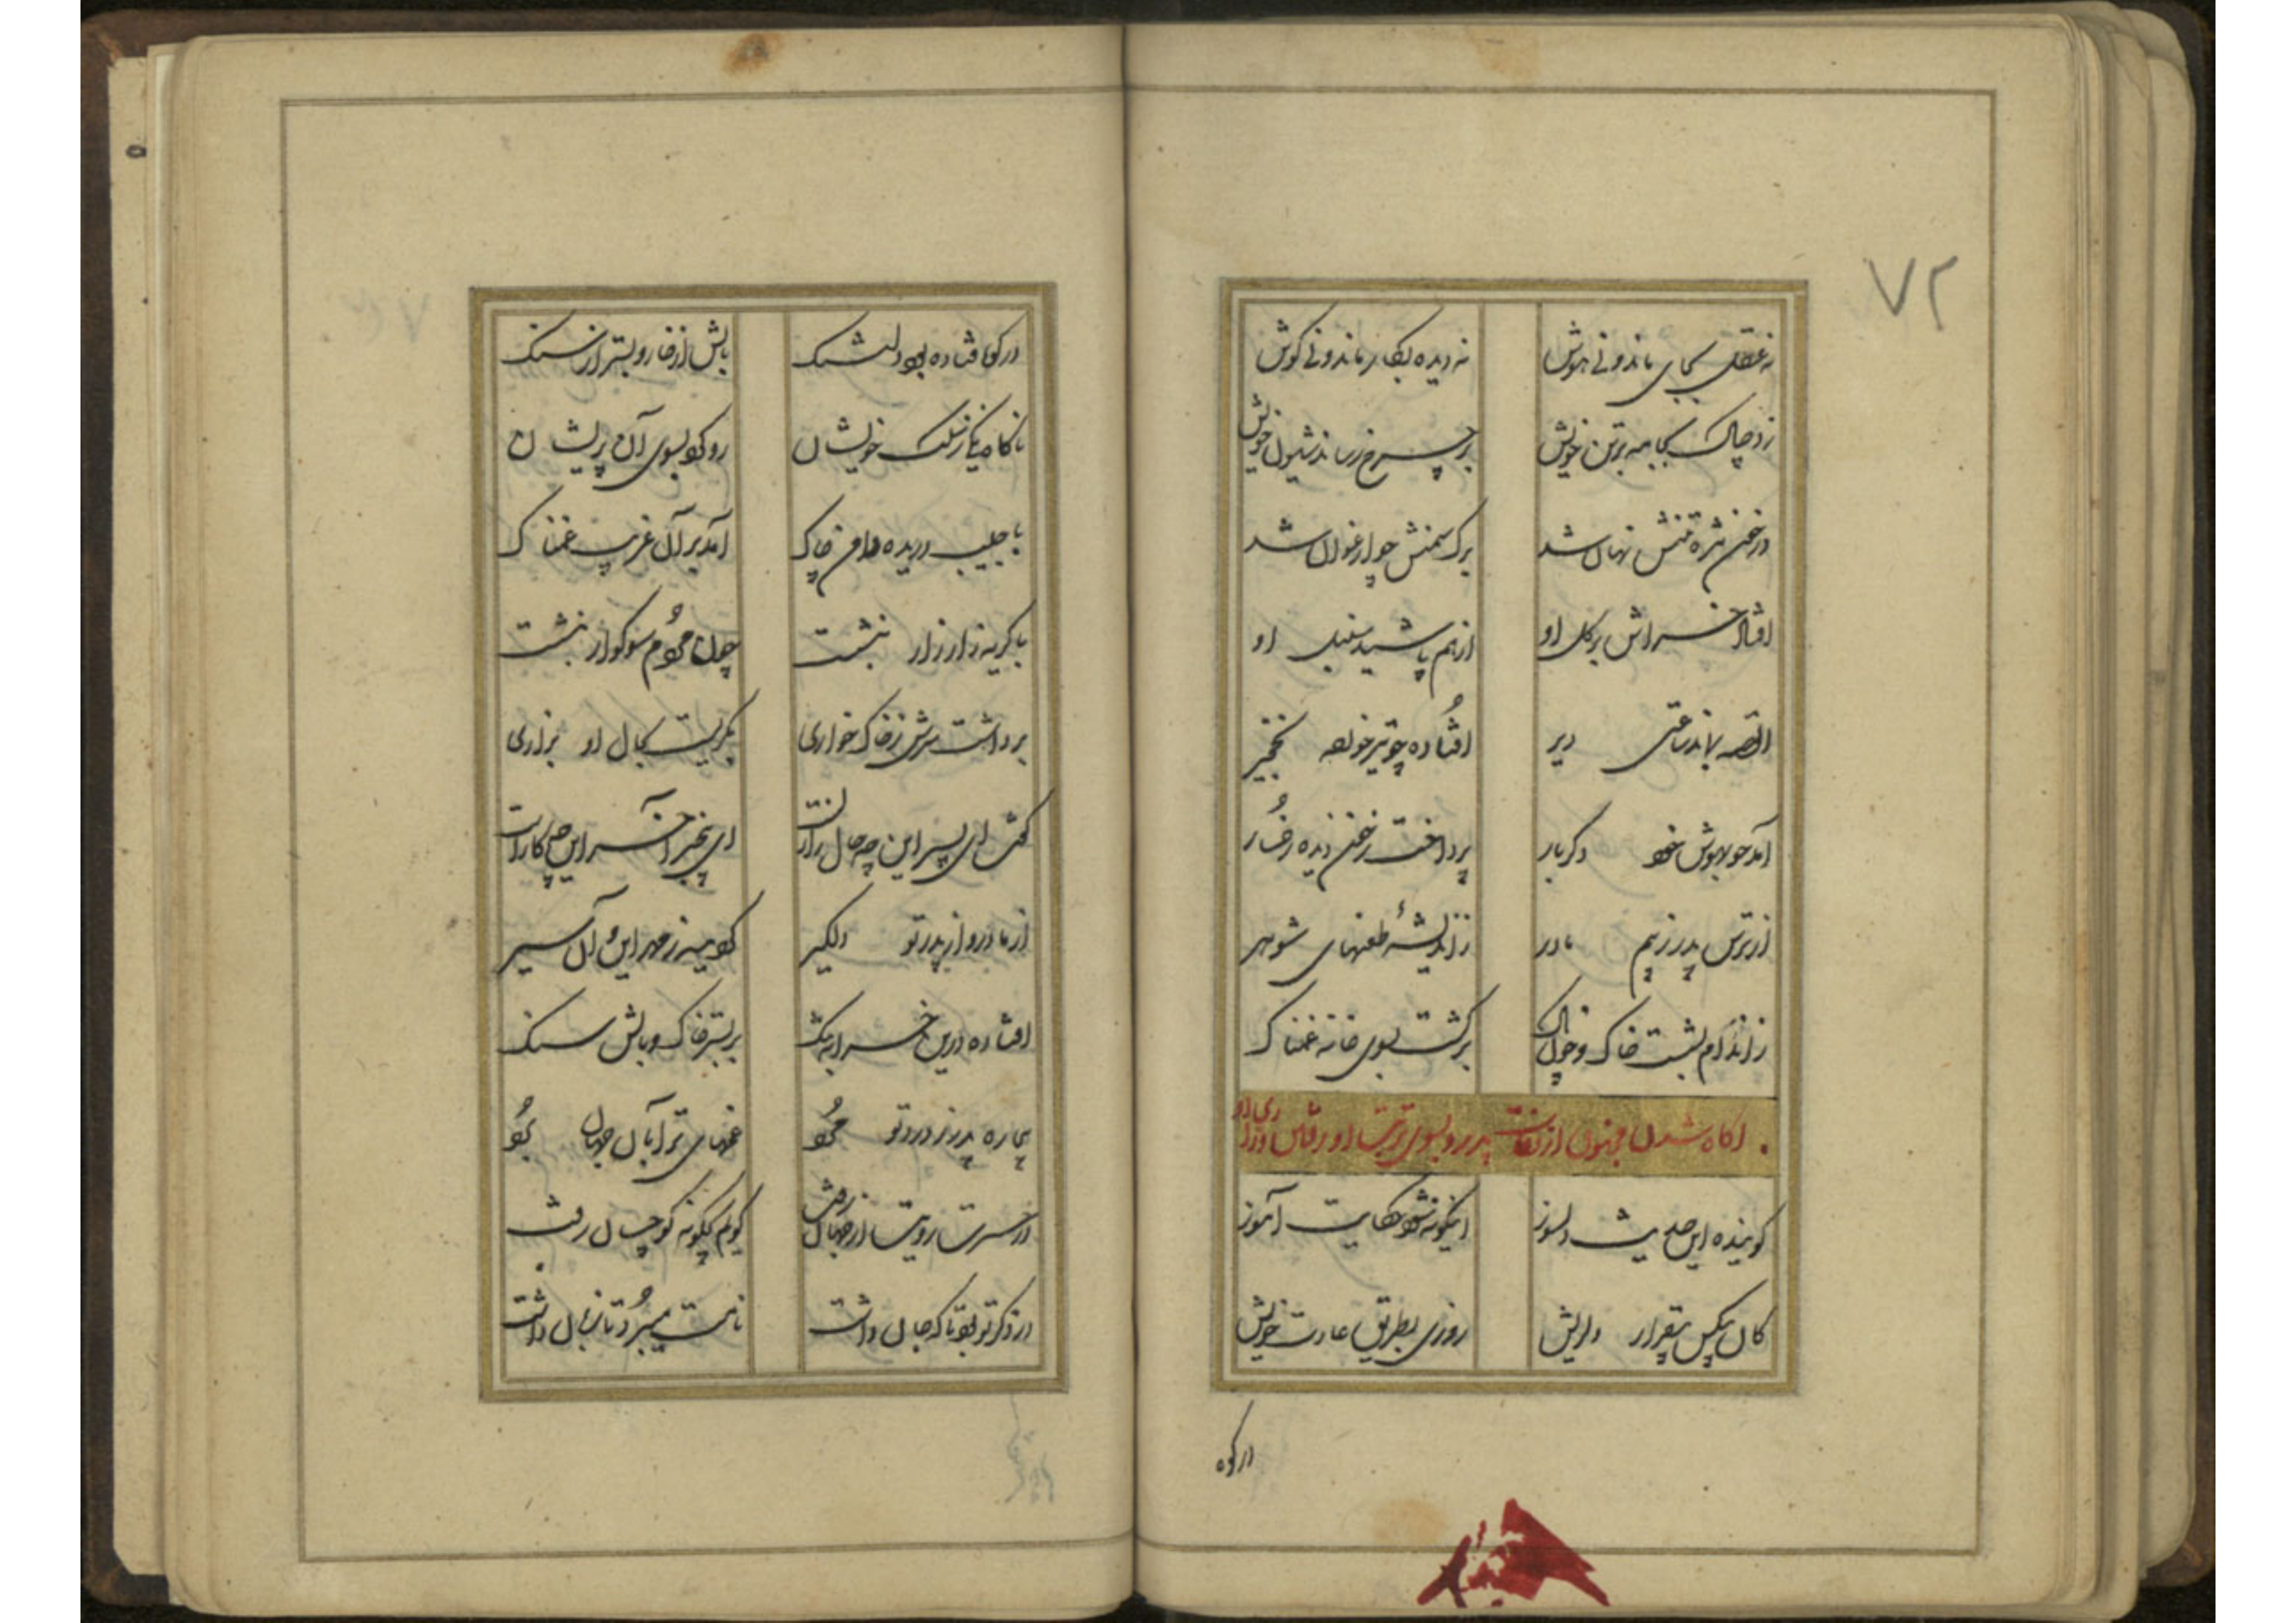 ۷۲
نه عقل بجای ماند و نی هوش نه دیده بکار ماند و نی گوش
زد چاک بجامه بر تن خویش بر چرخ رساند شیون خویش
در خون مژه تنش نهان شد برک سمنش چو ارغوان شد
افتاد خراش بر کل او از هم پاشید سنبل او
القصه بماند ساعتی دیر افتاده چو تیر خورده نخجیر
آمد چو بهوش خود دکر بار پرداخت ز خون دیده رخسار
از ترس پدر ز بیم مادر ز اندیشهٔ طعنهای شوهر
ز اندام بشست خاک و خون پاک برکشت بسوی خانه غمناک
آکاه شدن مجنون از وفات پدر و بسوی تربت او رفتن و زاری او
کوینده این حدیث دلسوز اینکونه شود حکایت آموز
کان بیکس بیقرار دلریش روزی بطریق عادت خویش
در کوه
در کوه فتاده بود دلتنک بالش از خار و بستر از سنک
ناکاه یکی ز نسل خویشان رو کرد بسوی آن پریشان
با جیب دریده دامن چاک آمد بر آن غریب غمناک
با کریه زار زار بنشست چون مردم سوکوار بنشست
برداشت سرش ز خاک خواری بکریست بحال او بزاری
کفت ای پسر این چه حال زارست ای بیخبر آخر این چه کارست
از مادر و از پدر تو دلکیر کردیده ز مهر این و آن سیر
افتاده درین خرابه تنک بر بستر خاک و بالش سنک
بیچاره پدر ز درد تو مرد غمهای ترا بآن جهان برد
در حسرت رویت از جهان رفت کویم چکونه کو چسان رفت
در ذکر تو بود تا که جان داشت نامت میبرد تا زبان داشت